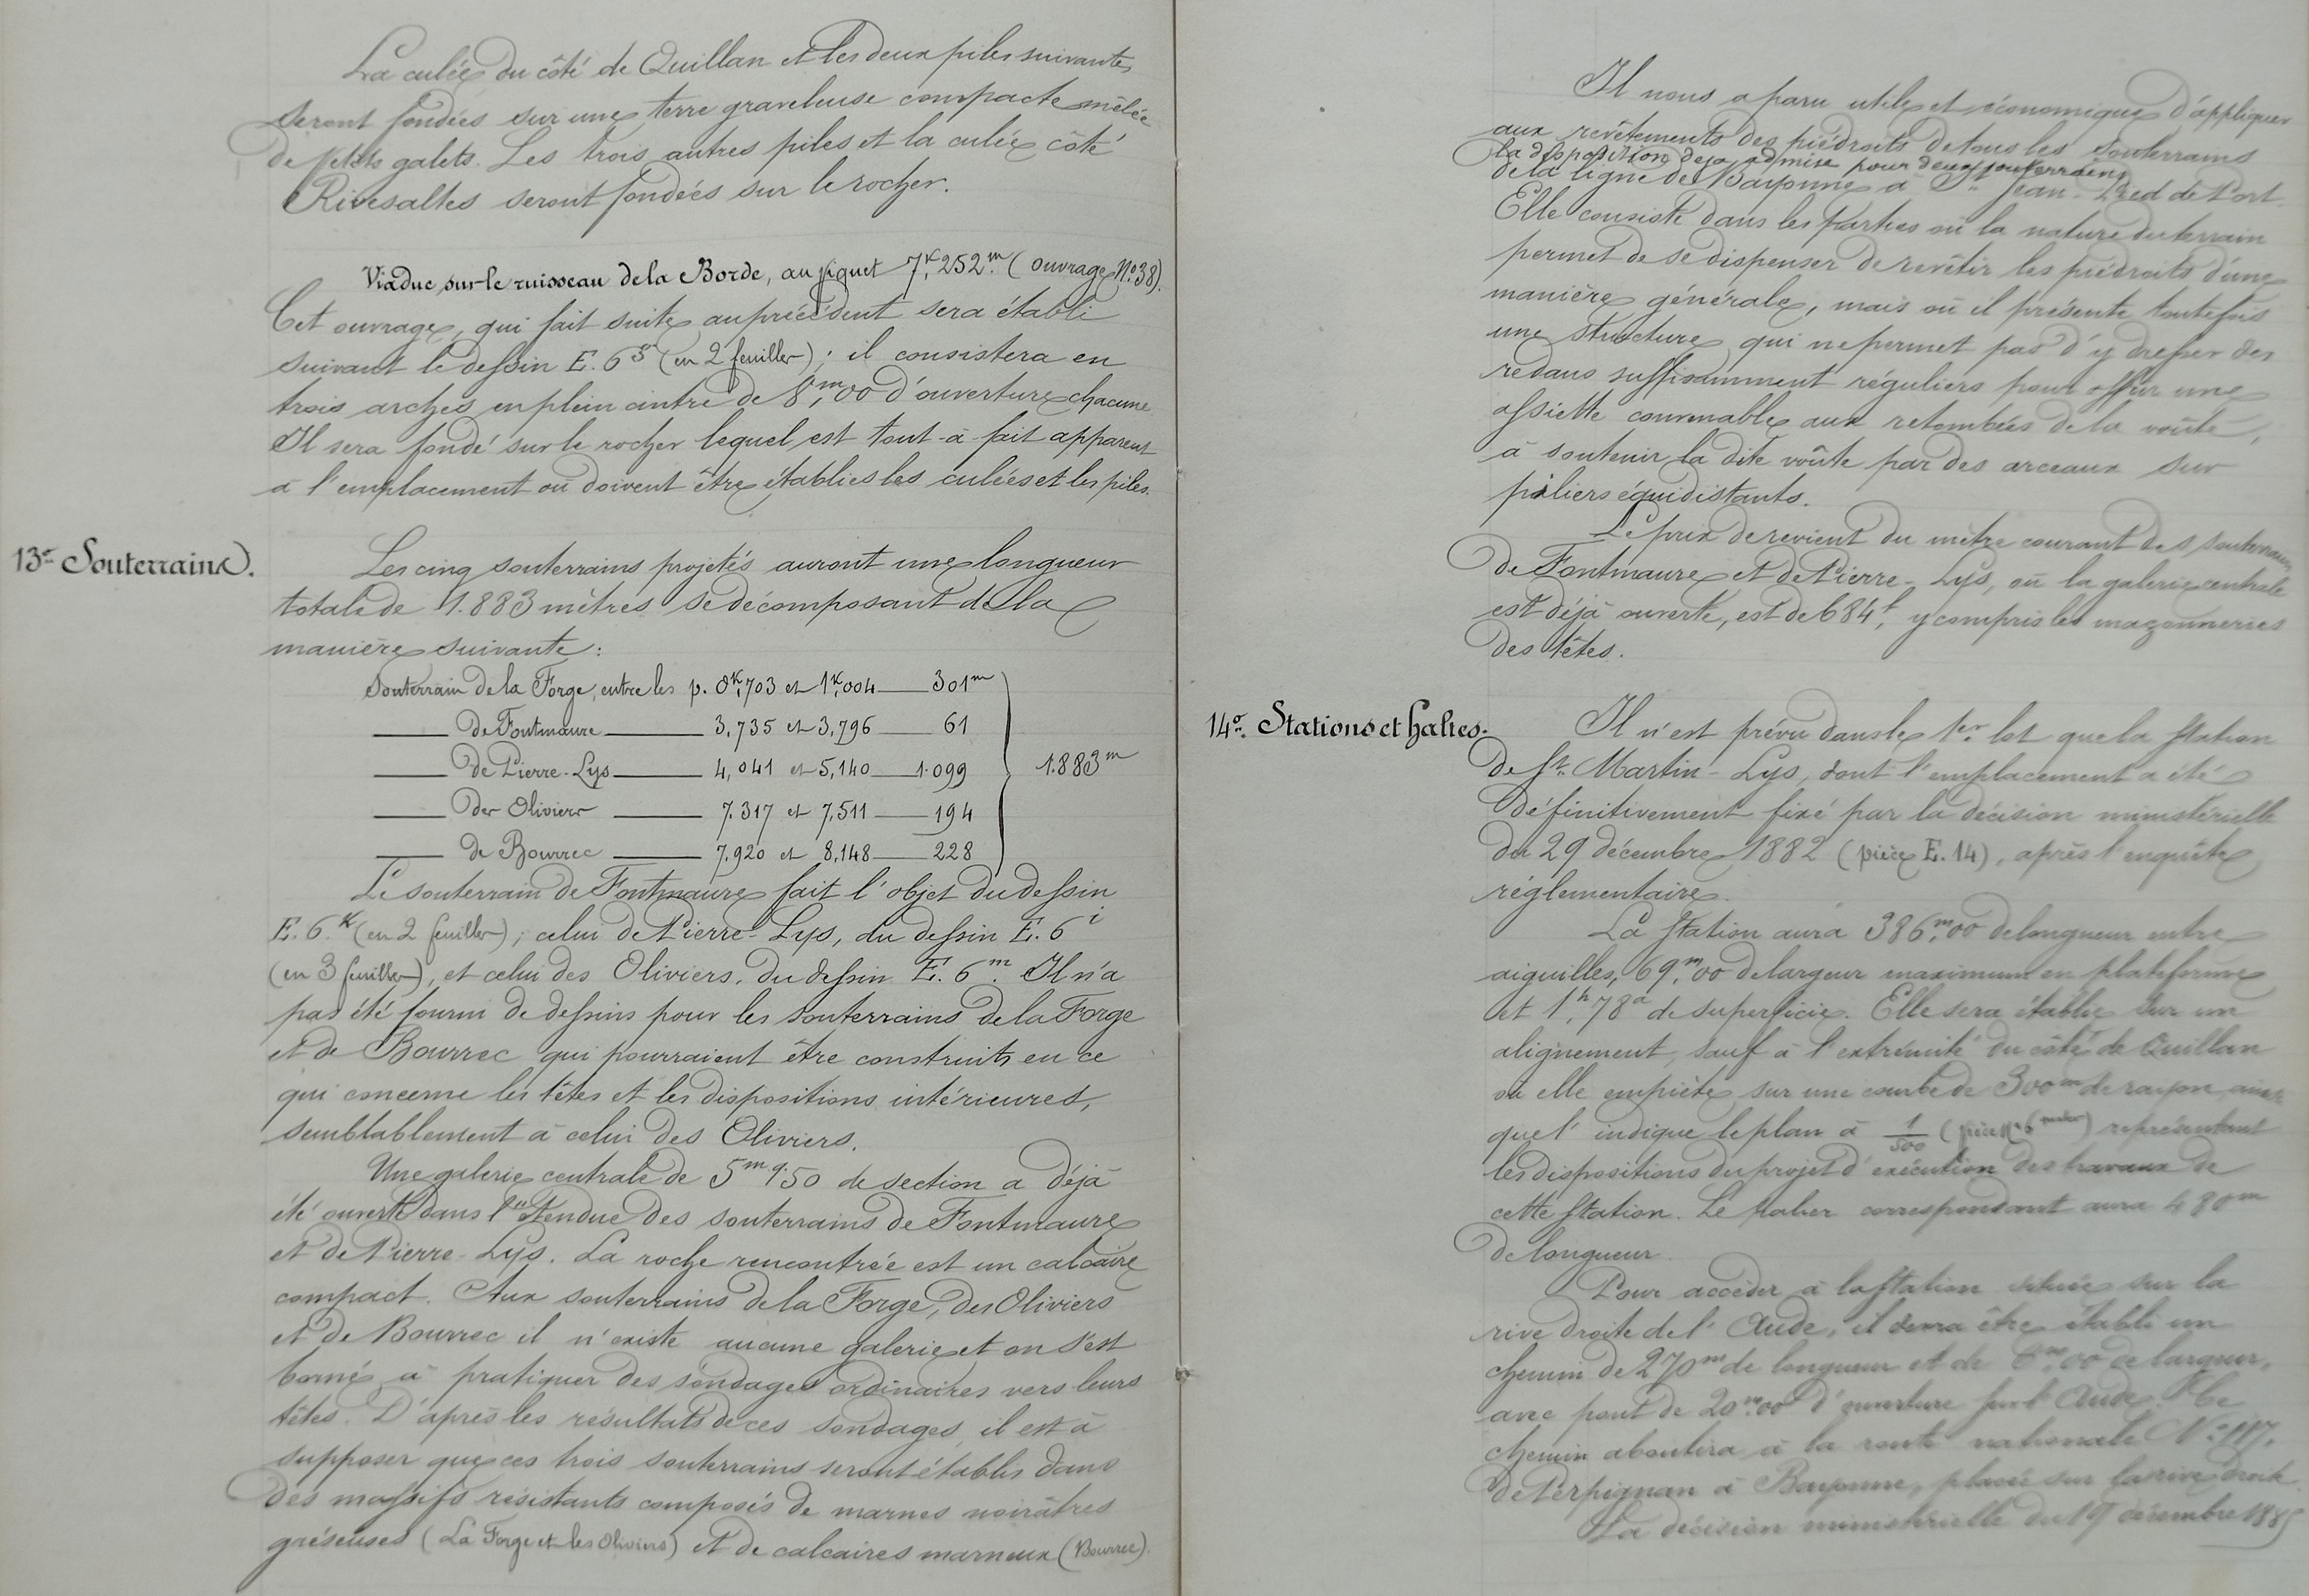 La culée du côté de Quillan et les deux piles suivantes
seront fondées sur une terre graveleuse compacte mêlée
de petits galets. Les trois autres piles et la culée côté
Rivesaltes seront fondées sur le rocher.
Viaduc sur le ruisseau de la Borde, au piquet 7k,252m (ouvrage No 38).
Cet ouvrage, qui fait suite au précédent sera établi
suivant le dessin E. 6 g (en 2 feuilles) ; il consistera en
trois arches en plein cintre de 8m,00 d'ouverture chacune
Il sera fondé sur le rocher lequel est tout-à-fait apparent
à l'emplacement où doivent être établies les culées et les piles.
13o Souterrains.
Les cinq souterrains projetés auront une longueur
totale de 1.883 mètres se décomposant de la
manière suivante :
Souterrain de la Forge, entre les p. 0k,703 et 1k,004 — 301m
— de Fontmaure — 3,735 et 3,796 — 61
— de Pierre-Lys — 4,041 et 5,140 — 1.099 1.883m
— des Oliviers — 7.317 et 7,511 — 194
— de Bourrec — 7,920 et 8,148 — 228
Le souterrain de Fontmaure fait l'objet du dessin
E. 6 k (en 2 feuilles) ; celui de Pierre-Lys, du dessin E. 6 i
(en 3 feuilles), et celui des Oliviers, du dessin E. 6 m. Il n'a
pas été fourni de dessins pour les souterrains de la Forge
et de Bourrec qui pourraient être construits en ce
qui concerne les têtes et les dispositions intérieures,
semblablement à celui des Oliviers.
Une galerie centrale de 5mq,50 de section a déjà
été ouverte dans l'étendue des souterrains de Fontmaure
et de Pierre-Lys. La roche rencontrée est un calcaire
compact. Aux souterrains de la Forge, des Oliviers
et de Bourrec il n'existe aucune galerie et on s'est
borné à pratiquer des sondages ordinaires vers leurs
têtes. D'après les résultats de ces sondages, il est à
supposer que ces trois souterrains seront établis dans
des massifs résistants composés de marnes noirâtres
gréseuses (La Forge et les Oliviers) et de calcaires marneux (Bourrec).
Il nous a paru utile et économique d'appliquer
aux revêtements des piédroits de tous les souterrains
la disposition déjà admise pour deux souterrains
de la ligne de Bayonne à St Jean-Pied de Port.
Elle consiste dans les parties où la nature du terrain
permet de se dispenser de revêtir les piédroits d'une
manière générale, mais où il présente toutefois
une structure qui ne permet pas d'y dresser des
redans suffisamment réguliers pour offrir une
assiette convenable aux retombées de la voûte,
à soutenir la dite voûte par des arceaux sur
piliers équidistants.
Le prix de revient du mètre courant des souterrains
de Fontmaure et de Pierre-Lys, où la galerie centrale
est déjà ouverte, est de 684f, y compris les maçonneries
des têtes.
14o. Stations et haltes.
Il n'est prévu dans le 1er lot que la station
de St. Martin-Lys, dont l'emplacement a été
définitivement fixé par la décision ministérielle
du 29 décembre 1882 (pièce E. 14), après l'enquête
réglementaire.
La station aura 386m,00 de longueur entre
aiguilles, 69m,00 de largeur maximum en plateforme
et 1h,78a de superficie. Elle sera établie sur un
alignement, sauf à l'extrémité du côté de Quillan
où elle empiète sur une courbe de 300m de rayon, ainsi
que l'indique le plan à 1/500 (pièce No 6) représentant
les dispositions du projet d'exécution des travaux de
cette station. Le palier correspondant aura 480m
de longueur.
Pour accéder à la station située sur la
rive droite de l'Aude, il devra être établi un
chemin de 270m de longueur et de 6m,00 de largeur,
avec pont de 20m,00 d'ouverture sur l'Aude. Ce
chemin aboutira à la route nationale No 117,
de Perpignan à Bayonne, placée sur la rive droite.
La décision ministérielle du 19 décembre 1885